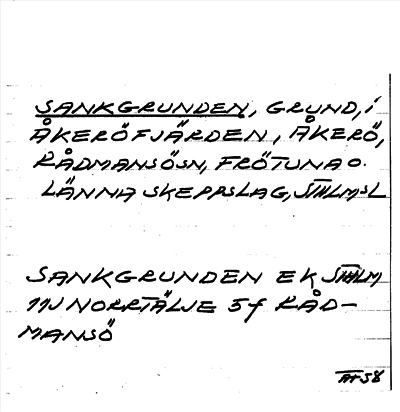 SANKGRUNDEN, GRUND, i
ÅKERÖFJÄRDEN, ÅKERÖ,
RÅDMANSÖSN, FRÖTUNA O.
LÄNNA SKEPPSLAG, STHLMSL
SANKGRUNDEN EK STHLM
11J NORRTÄLJE 5f RÅD-
MANSÖ
AT58